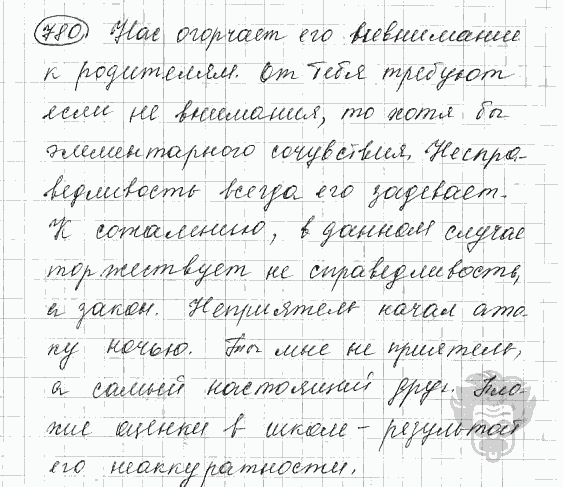 780. Нас огорчает его невнимание
к родителям. От тебя требуют
если не внимания, то хотя бы
элементарного сочувствия. Неспра-
ведливость всегда его задевает.
К сожалению, в данном случае
торжествует не справедливость,
а закон. Неприятель начал ата-
ку ночью. Ты мне не приятель,
а самый настоящий друг. Пло-
хие оценки в школе - результат
его неаккуратности.